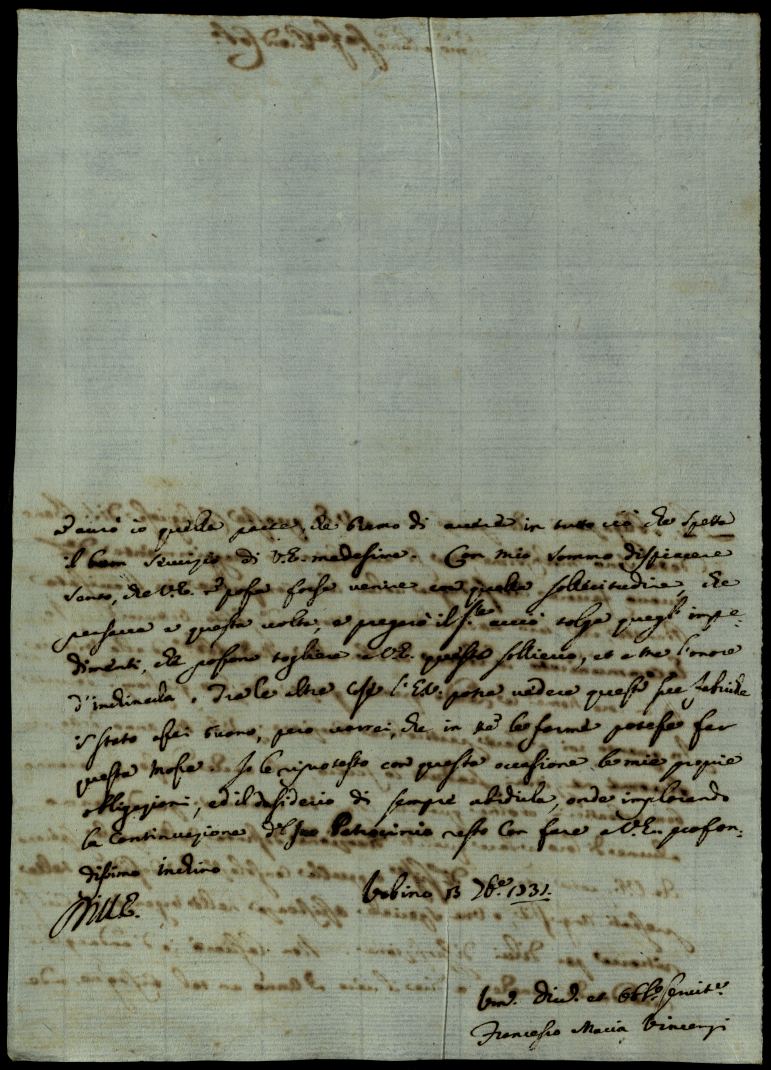 avrò io quella parte, che bramo di avere in tutto ciò che spetta
il buon servizio di V.E. medesima. Con mio sommo dispiacere
sento, che V.E. possa forse venire con quella sollecitudine, che
pensava a questa volta, e pregarò il Sig.re acciò tolga quegl'impe:
dimenti, che possono togliere a V.E. questo sollievo, et a me l'onore
d'inchinarla. Tra le altre cose l'E.V. potrà vedere queste sue fabriche
in stato assai buono, però vorrei, che in me le forme potesse far
questa mossa. Io le riprotesto con questa occasione le mie proprie
obligazioni, ed il desiderio di sempre ubidirla, onde implorando
la continuazione del suo Patrocinio resto con fare a V.En. profon:
dissimo inchino
Urbino 13 7bre 1731.
Di V.E.
Um. Div. et Obb. Servit.e
Francesco Maria Vincenzi